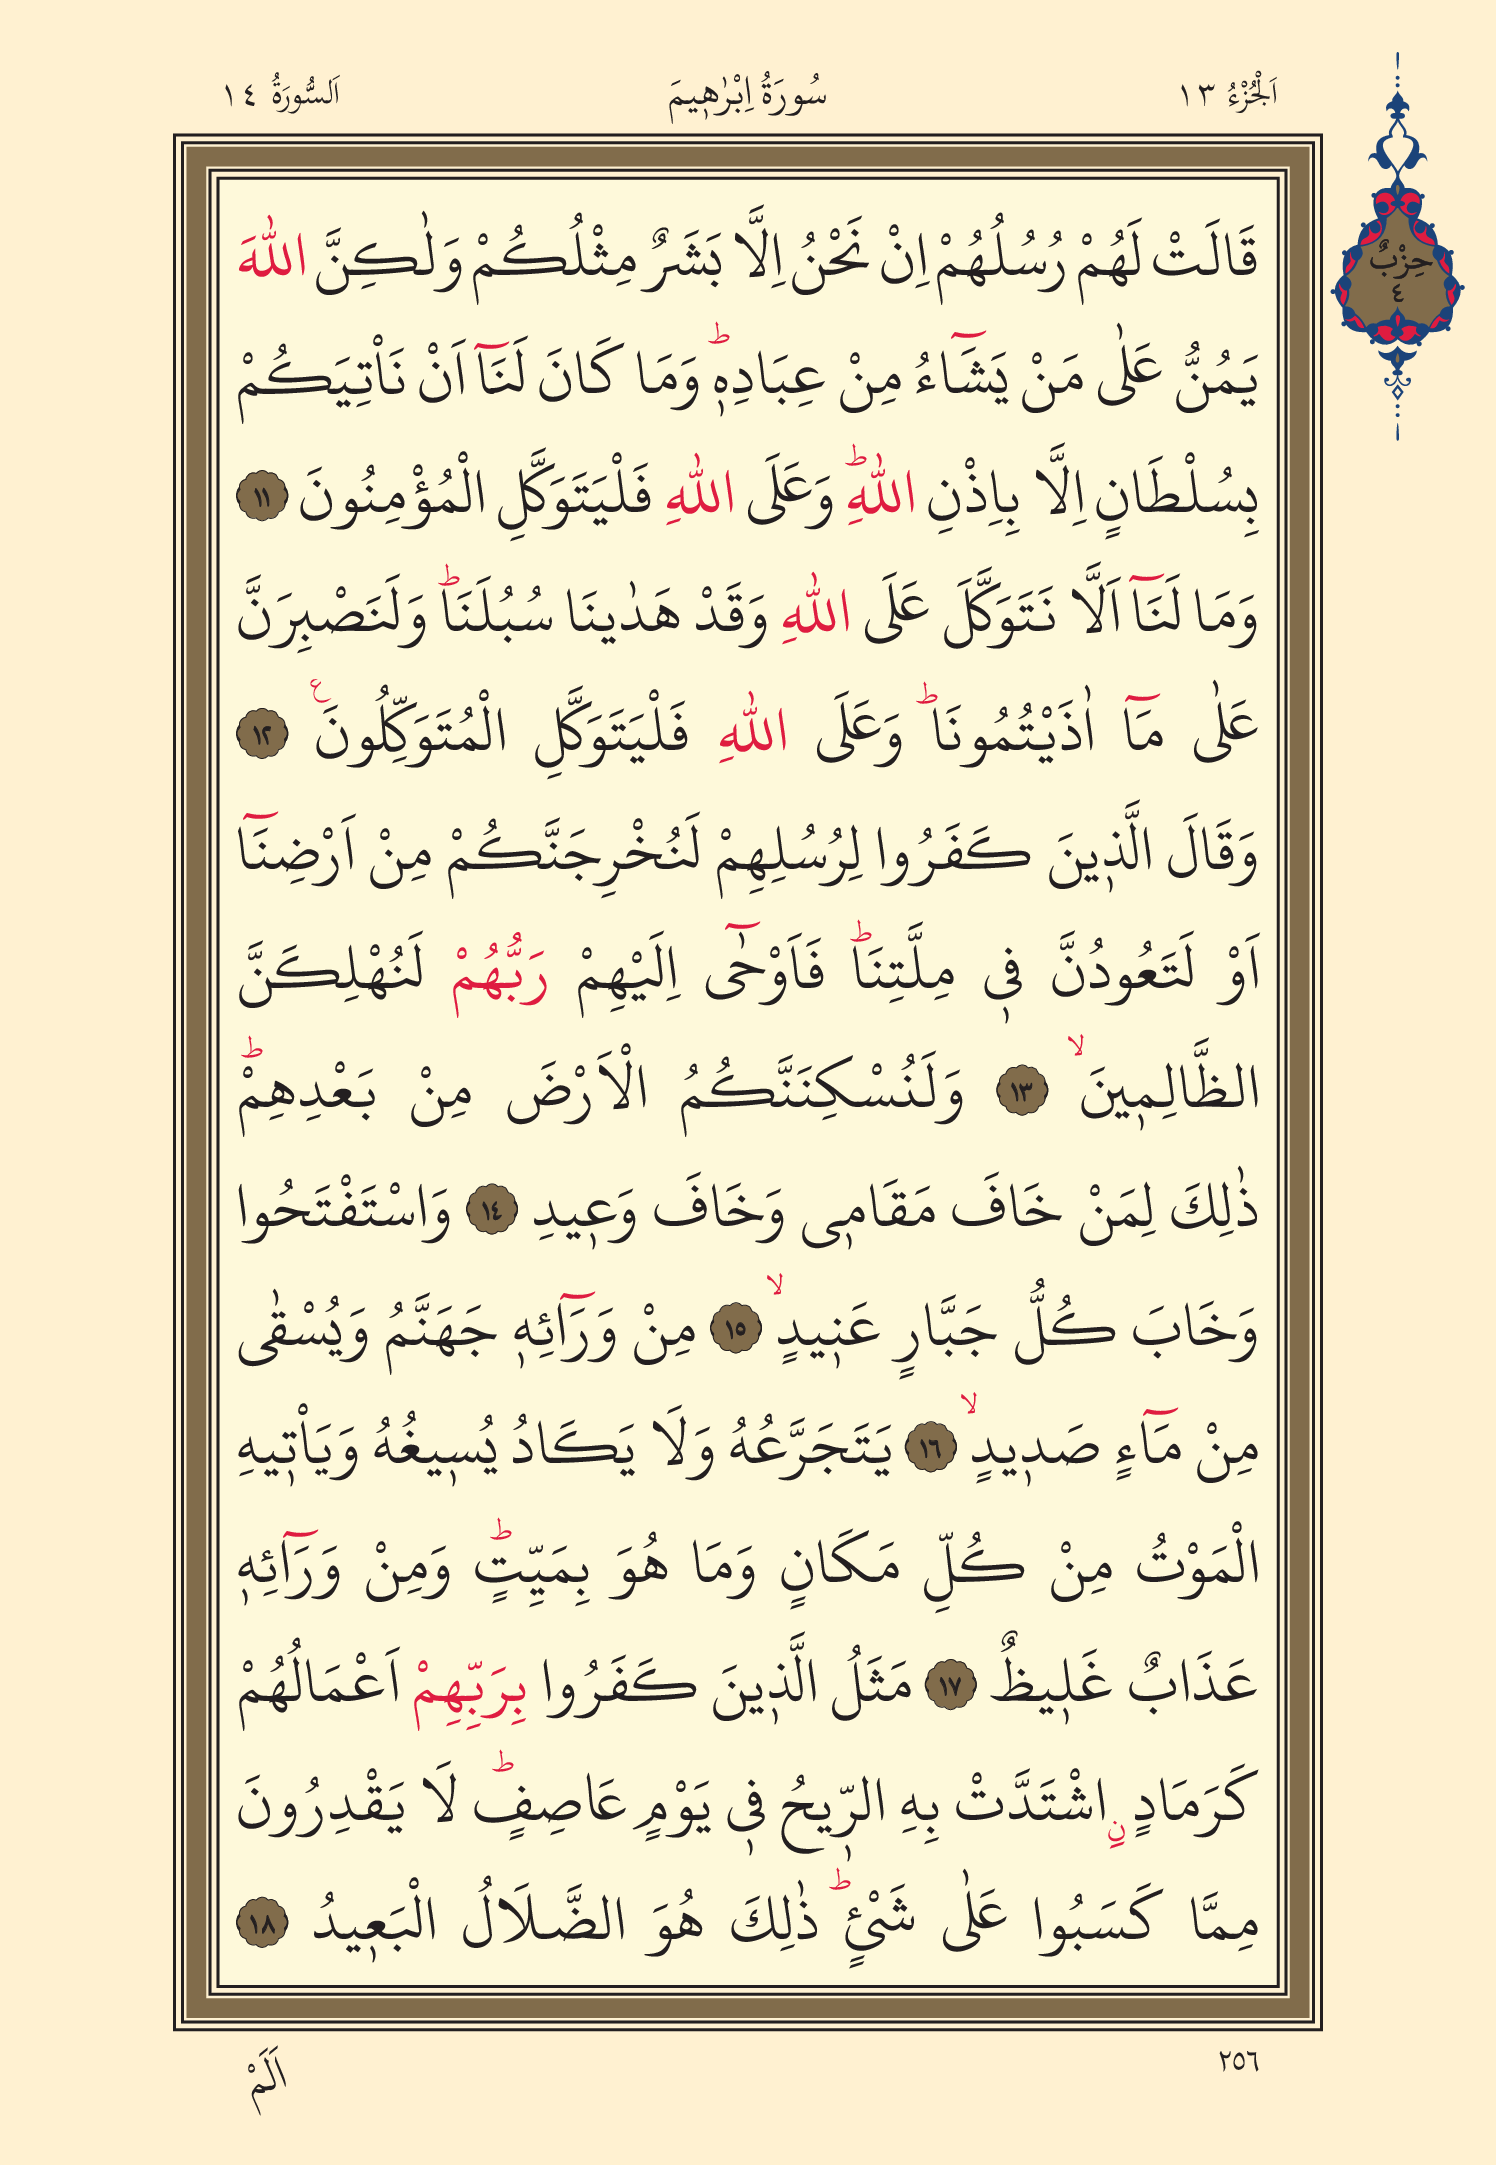 اَلْجُزْءُ ١٣
سُورَةُ اِبْرٰه۪يمَ
اَلسُّورَةُ ١٤
حِزْبٌ
٤
قَالَتْ لَهُمْ رُسُلُهُمْ اِنْ نَحْنُ اِلَّا بَشَرٌ مِثْلُكُمْ وَلٰكِنَّ اللّٰهَ
يَمُنُّ عَلٰى مَنْ يَشَٓاءُ مِنْ عِبَادِه۪ۜ وَمَا كَانَ لَنَٓا اَنْ نَأْتِيَكُمْ
بِسُلْطَانٍ اِلَّا بِاِذْنِ اللّٰهِۜ وَعَلَى اللّٰهِ فَلْيَتَوَكَّلِ الْمُؤْمِنُونَ ١١
وَمَا لَنَٓا اَلَّا نَتَوَكَّلَ عَلَى اللّٰهِ وَقَدْ هَدٰينَا سُبُلَنَاۜ وَلَنَصْبِرَنَّ
عَلٰى مَٓا اٰذَيْتُمُونَاۜ وَعَلَى اللّٰهِ فَلْيَتَوَكَّلِ الْمُتَوَكِّلُونَ۟ ١٢
وَقَالَ الَّذ۪ينَ كَفَرُوا لِرُسُلِهِمْ لَنُخْرِجَنَّكُمْ مِنْ اَرْضِنَٓا
اَوْ لَتَعُودُنَّ ف۪ي مِلَّتِنَاۜ فَاَوْحٰٓى اِلَيْهِمْ رَبُّهُمْ لَنُهْلِكَنَّ
الظَّالِم۪ينَۙ ١٣ وَلَنُسْكِنَنَّكُمُ الْاَرْضَ مِنْ بَعْدِهِمْۜ
ذٰلِكَ لِمَنْ خَافَ مَقَام۪ي وَخَافَ وَع۪يدِ ١٤ وَاسْتَفْتَحُوا
وَخَابَ كُلُّ جَبَّارٍ عَن۪يدٍۙ ١٥ مِنْ وَرَٓائِه۪ جَهَنَّمُ وَيُسْقٰى
مِنْ مَٓاءٍ صَد۪يدٍۙ ١٦ يَتَجَرَّعُهُ وَلَا يَكَادُ يُس۪يغُهُ وَيَأْت۪يهِ
الْمَوْتُ مِنْ كُلِّ مَكَانٍ وَمَا هُوَ بِمَيِّتٍۜ وَمِنْ وَرَٓائِه۪
عَذَابٌ غَل۪يظٌ ١٧ مَثَلُ الَّذ۪ينَ كَفَرُوا بِرَبِّهِمْ اَعْمَالُهُمْ
كَرَمَادٍۨ اشْتَدَّتْ بِهِ الرّ۪يحُ ف۪ي يَوْمٍ عَاصِفٍۜ لَا يَقْدِرُونَ
مِمَّا كَسَبُوا عَلٰى شَيْءٍۜ ذٰلِكَ هُوَ الضَّلَالُ الْبَع۪يدُ ١٨
٢٥٦
اَلَمْ